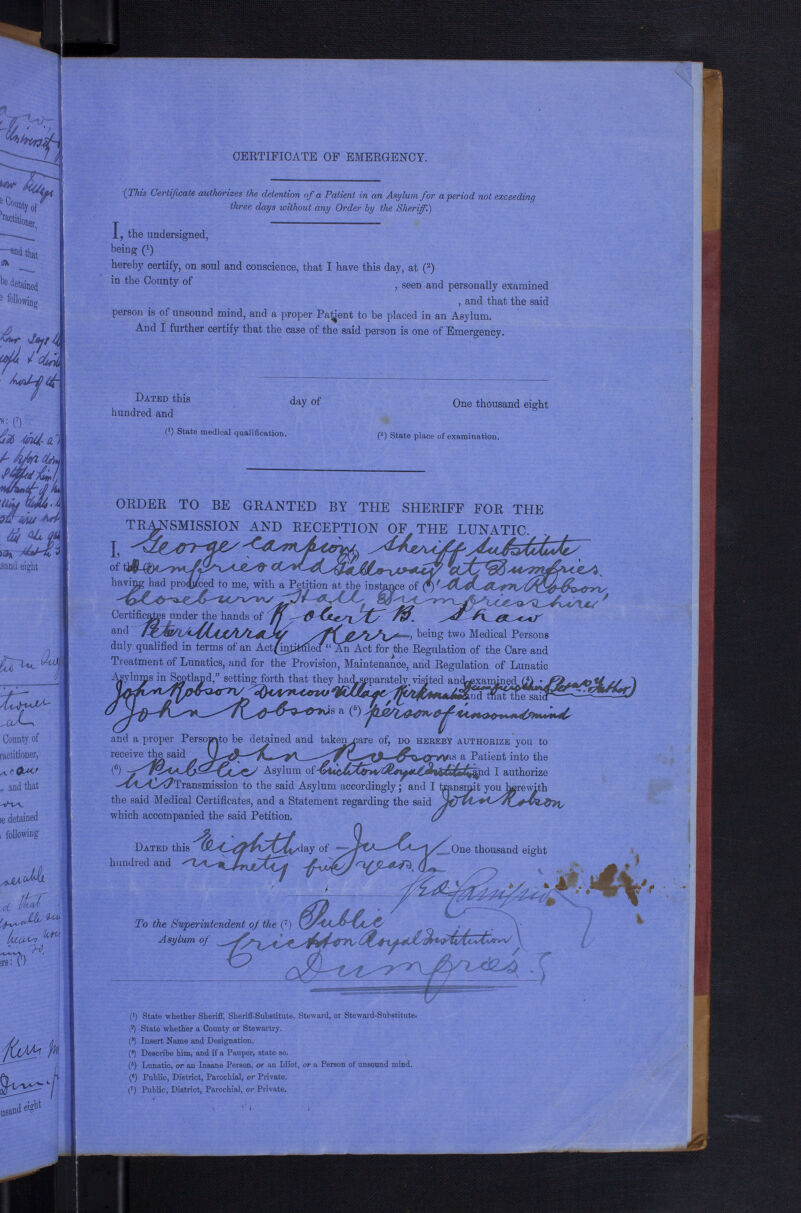 CERTIFICATE OF EMERGENCY.
(This Certificate authorizes the detention of a Patient in an Asylum for a period not exceeding
three days without any Order by the Sheriff.)
I, the undersigned,
being (¹)
hereby certify, on soul and conscience, that I have this day, at (²)
in the County of , seen and personally examined
, and that the said
person is of unsound mind, and a proper Patient to be placed in an Asylum.
And I further certify that the case of the said person is one of Emergency.
DATED this day of One thousand eight
hundred and
(¹) State medical qualification. (²) State place of examination.
ORDER TO BE GRANTED BY THE SHERIFF FOR THE
TRANSMISSION AND RECEPTION OF THE LUNATIC.
I, George Campion, Sheriff Substitute
of Dumfries and Galloway at Dumfries
having had produced to me, with a Petition at the instance of (³) Adam Robson,
Closeburn Hall, Dumfriesshire
Certificates under the hands of Robert B. Shaw
and Peter Murray Kerr, being two Medical Persons
duly qualified in terms of an Act intituled "An Act for the Regulation of the Care and
Treatment of Lunatics, and for the Provision, Maintenance, and Regulation of Lunatic
Asylums in Scotland," setting forth that they had separately visited and examined (⁴)
John Robson Duncow Village Kirkmahoe Dumfriesshire and that the said
John Robson is a (⁵) person of unsound mind
and a proper Person to be detained and taken care of, DO HEREBY AUTHORIZE you to
receive the said John Robson as a Patient into the
(⁶) Public Asylum of Crichton Royal Institution and I authorize
his Transmission to the said Asylum accordingly; and I transmit you herewith
the said Medical Certificates, and a Statement regarding the said John Robson
which accompanied the said Petition.
DATED this Eighth day of July One thousand eight
hundred and ninety five years.
Geo. Campion
To the Superintendent of the (⁷) Public
Asylum of Crichton Royal Institution,
Dumfries.
(¹) State whether Sheriff, Sheriff-Substitute, Steward, or Steward-Substitute.
(²) State whether a County or Stewartry.
(³) Insert Name and Designation.
(⁴) Describe him, and if a Pauper, state so.
(⁵) Lunatic, or an Insane Person, or an Idiot, or a Person of unsound mind.
(⁶) Public, District, Parochial, or Private.
(⁷) Public, District, Parochial, or Private.